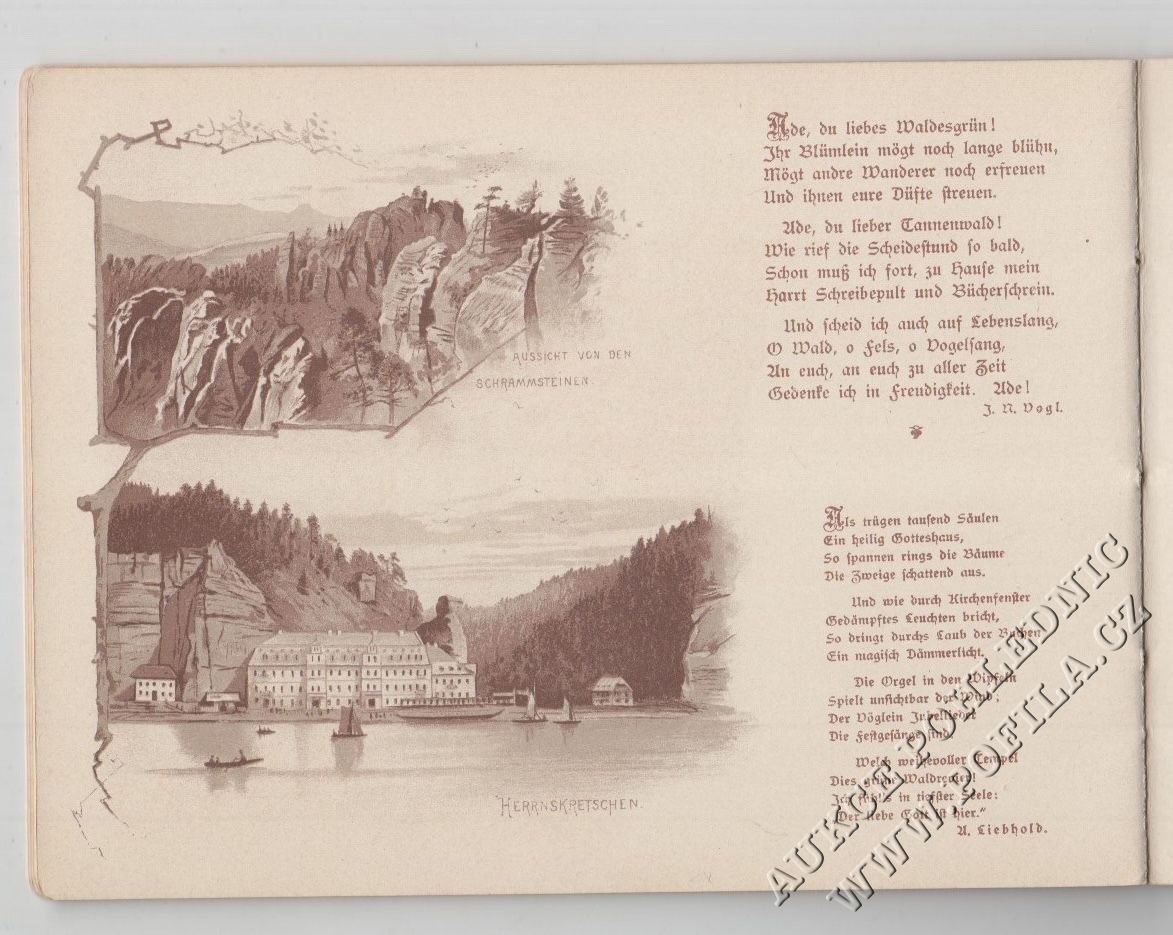 AUSSICHT VON DEN
SCHRAMMSTEINEN.
HERRNSKRETSCHEN.
Ade, du liebes Waldesgrün!
Ihr Blümlein mögt noch lange blühn,
Mögt andre Wanderer noch erfreuen
Und ihnen eure Düfte streuen.
Ade, du lieber Tannenwald!
Wie rief die Scheidestund so bald,
Schon muß ich fort, zu Hause mein
Harrt Schreibepult und Bücherschrein.
Und scheid ich auch auf Lebenslang,
O Wald, o Fels, o Vogelsang,
An euch, an euch zu aller Zeit
Gedenke ich in Freudigkeit. Ade!
J. N. Vogl.
Als trügen tausend Säulen
Ein heilig Gotteshaus,
So spannen rings die Bäume
Die Zweige schattend aus.
Und wie durch Kirchenfenster
Gedämpftes Leuchten bricht,
So dringt durchs Laub der Buchen
Ein magisch Dämmerlicht.
Die Orgel in den Wipfeln
Spielt unsichtbar der Wind;
Der Vöglein Jubellieder
Die Festgesänge sind.
Welch weihevoller Tempel
Dies grüne Waldrevier!
Ich fühl's in tiefster Seele:
"Der liebe Gott ist hier."
A. Liebhold.
AUKCE POŠALEDNIC
WWW.POFILA.CZ